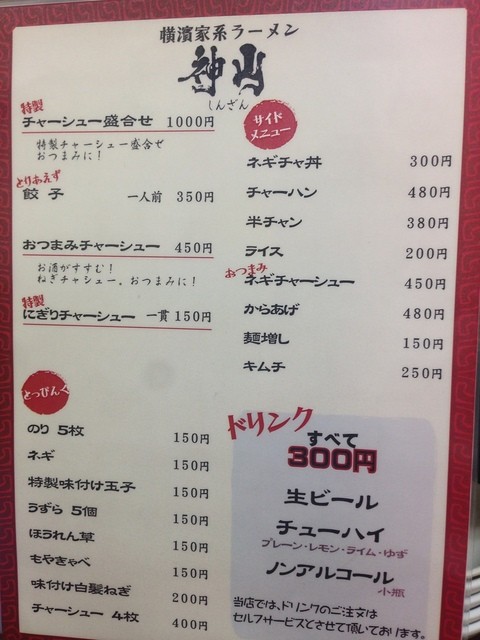 横濱家系ラーメン
神山
しんざん
特製
チャーシュー盛合せ 1000円
特製チャーシュー盛合せ
おつまみに！
とりあえず
餃子 一人前 350円
おつまみチャーシュー 450円
お酒がすすむ！
ねぎチャーシュー。おつまみに！
特製
にぎりチャーシュー 一貫 150円
とっぴんぐ
のり 5枚 150円
ネギ 150円
特製味付け玉子 150円
うずら 5個 150円
ほうれん草 150円
もやきゃべ 150円
味付け白髪ねぎ 200円
チャーシュー 4枚 400円
サイド
メニュー
ネギチャ丼 300円
チャーハン 480円
半チャン 380円
ライス 200円
おつまみ
ネギチャーシュー 450円
からあげ 480円
麺増し 150円
キムチ 250円
ドリンク
すべて
300円
生ビール
チューハイ
プレーン・レモン・ライム・ゆず
ノンアルコール
小瓶
当店では、ドリンクのご注文は
セルフサービスとさせて頂いております。